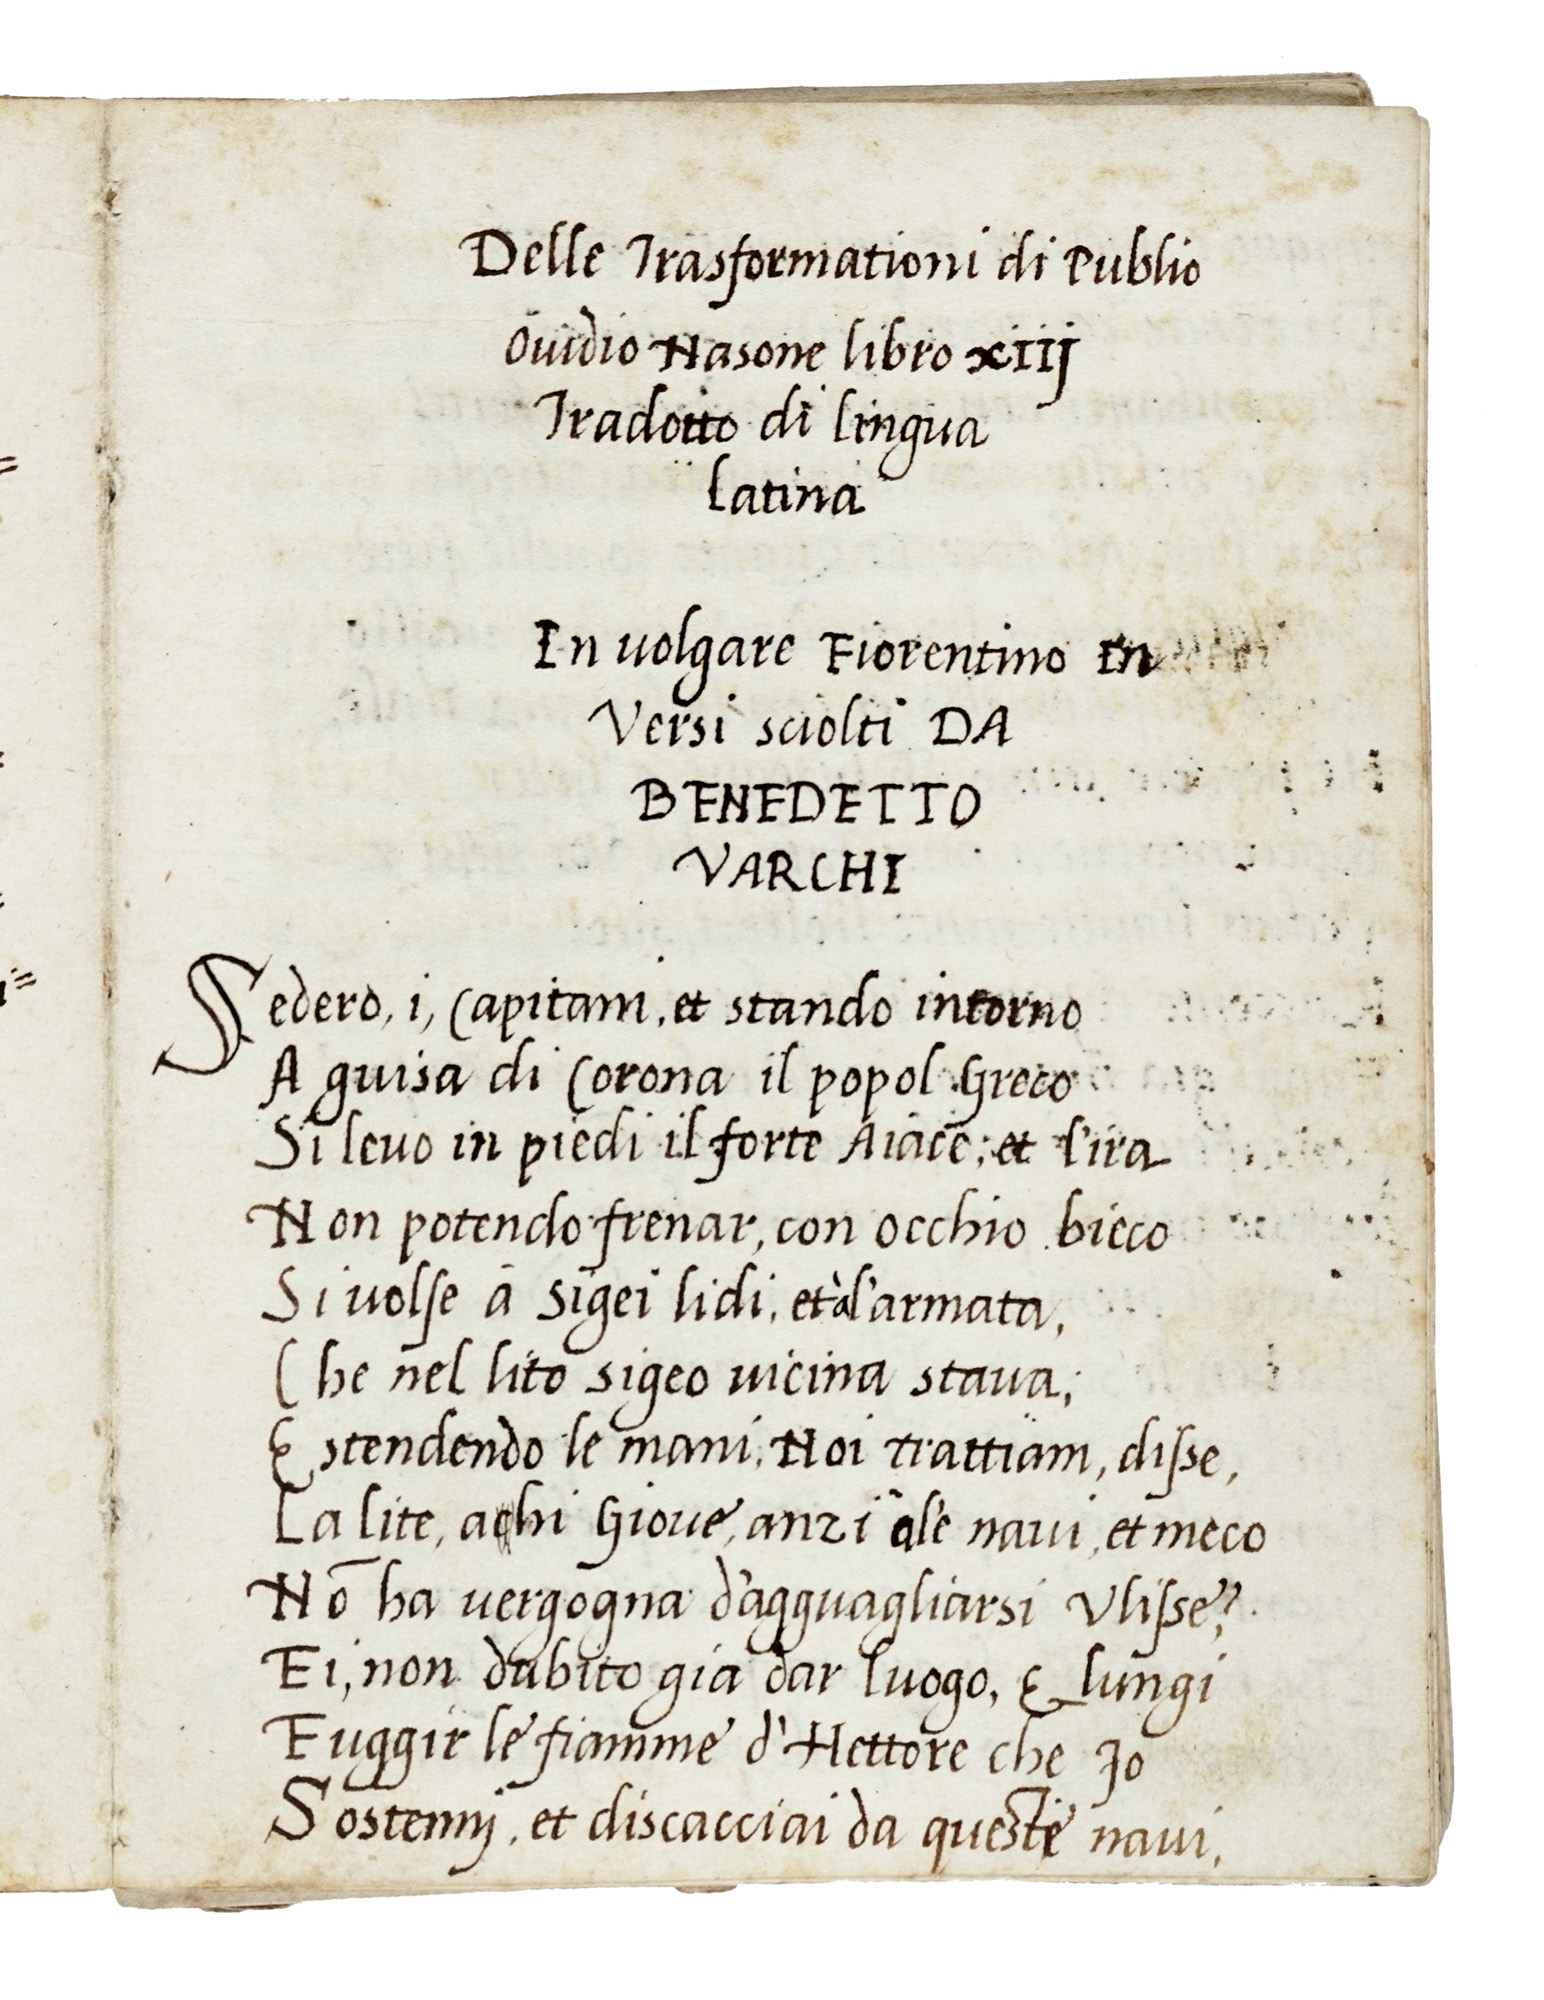 Delle Trasformationi di Publio
Ouidio Nasone libro xiij
Tradotto di lingua
latina
In uolgare Fiorentino in
Versi sciolti DA
BENEDETTO
VARCHI
Sedero, i, Capitani, et stando intorno
A guisa di Corona il popol Greco
Si leuo in piedi il forte Aiace; et l'ira
Non potendo frenar, con occhio bieco
Si uolſe à Sigei lidi, et à l'armata,
Che nel lito sigeo uicina staua;
& stendendo le mani, Noi trattiam, diſse,
La lite, achi Gioue, anzi à le naui, et meco
Nō ha uergogna d'agguagliarsi Vliſse?
Ei, non dubito gia dar luogo, & lungi
Fuggir le fiamme d'Hettore che Io
Sostenni, et discacciai da queste naui,